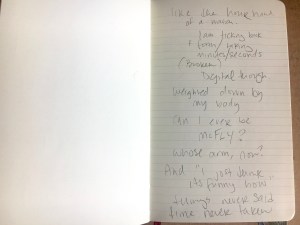 like the hour hand
of a watch.
I am ticking time
minutes/seconds
(broken)
Digital
weighed down by
my body
can I ever be
McFly?
whose arm, now?
And "I just think
it's funny how"
things never said
time never taken